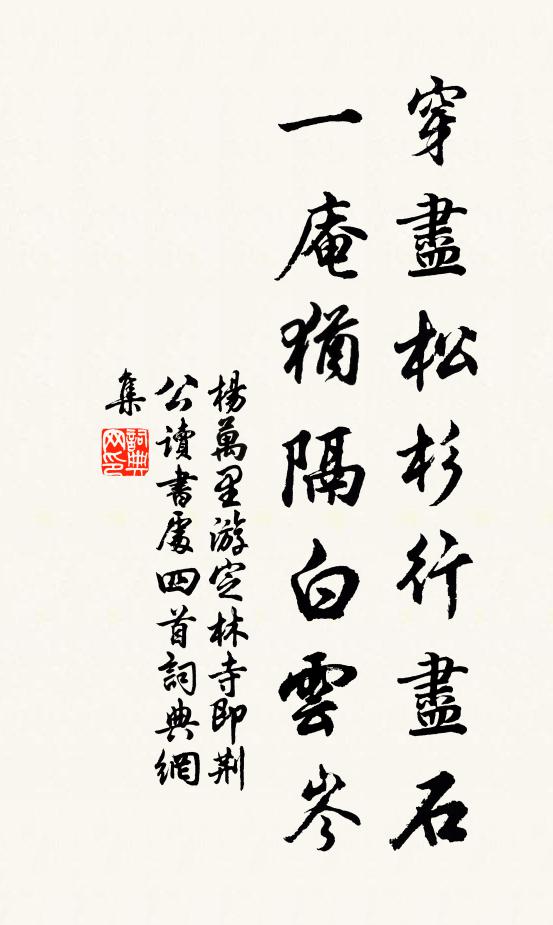 穿盡松杉行盡石
一庵猶隔白雲岑
楊萬里游定林寺即荆
公讀書處四首詞典網
集
詞典网印